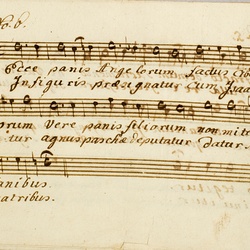 No. 6.
Ecce panis Angelorum factus Ci
In figuris præsignatur Cum Isaa
orum Vere panis filiorum non mite
itur agnus paschæ deputatur datur.
anibus.
atribus.